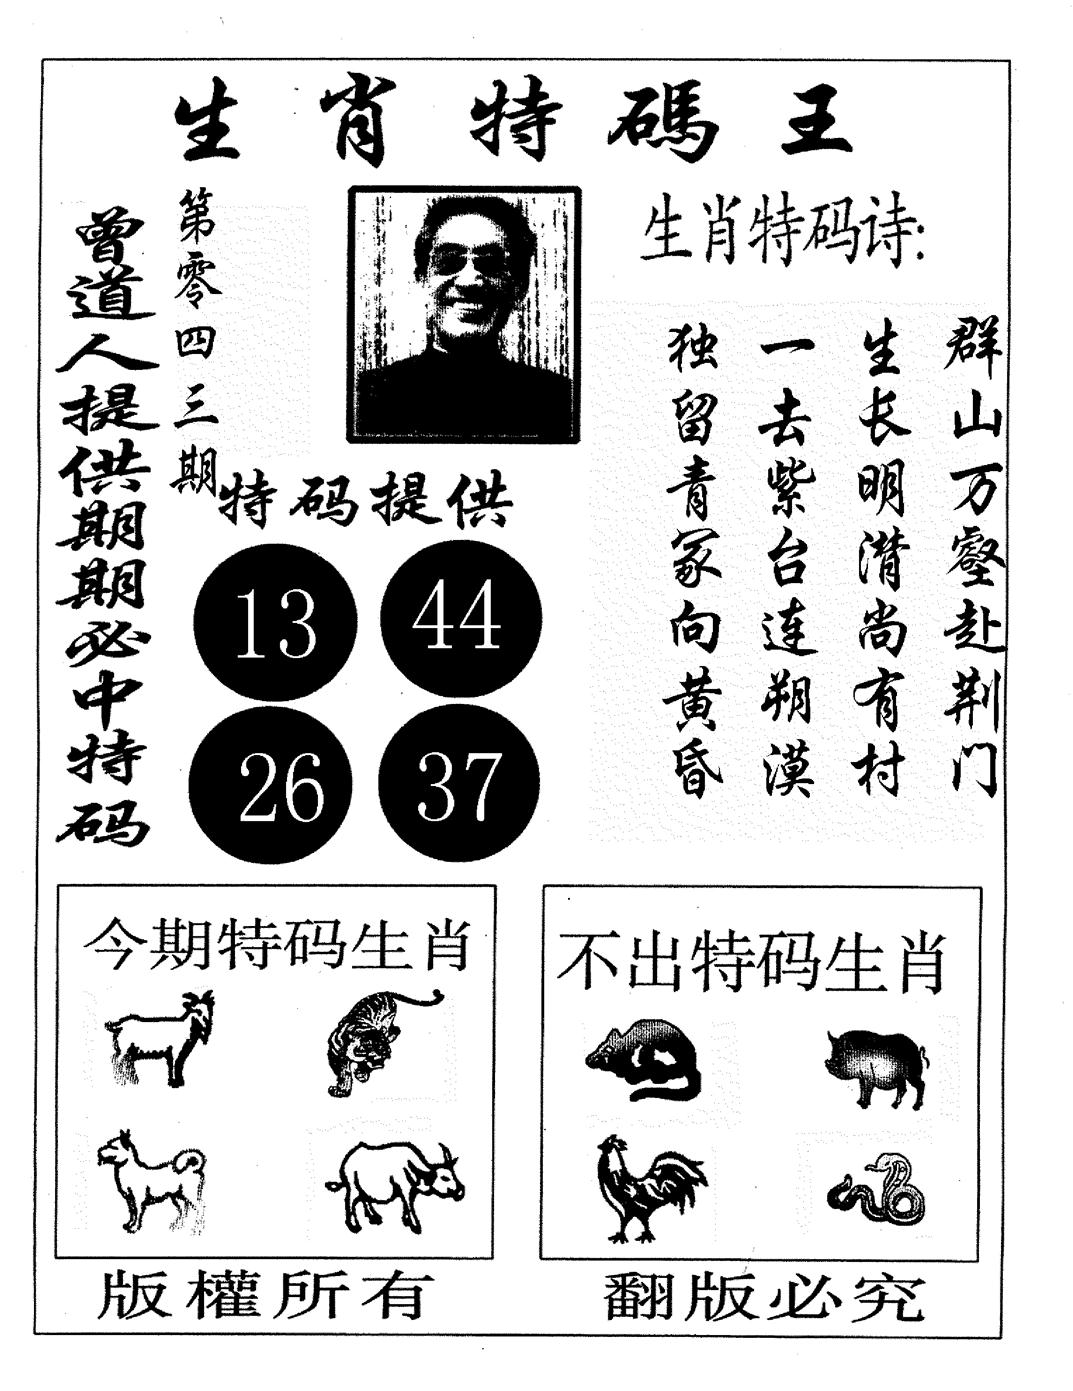 生肖特碼王
曾道人提供期期必中特码
第零四三期
生肖特码诗:
群山万壑赴荆门
生长明潸尚有村
一去紫台连朔漠
独留青冢向黄昏
特码提供
13 44
26 37
今期特码生肖
不出特码生肖
版權所有
翻版必究